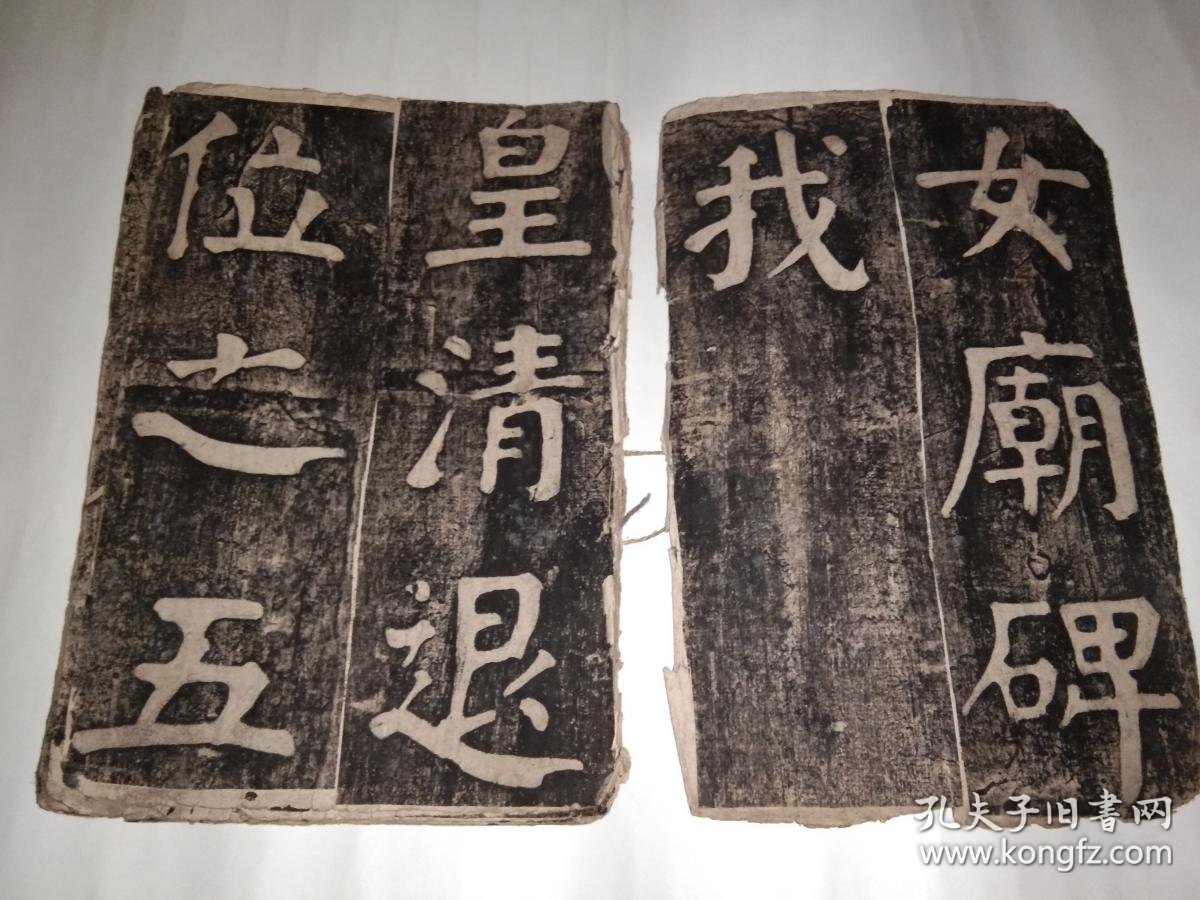 女廟碑
我
皇清退
位之五
孔夫子旧書网
www.kongfz.com